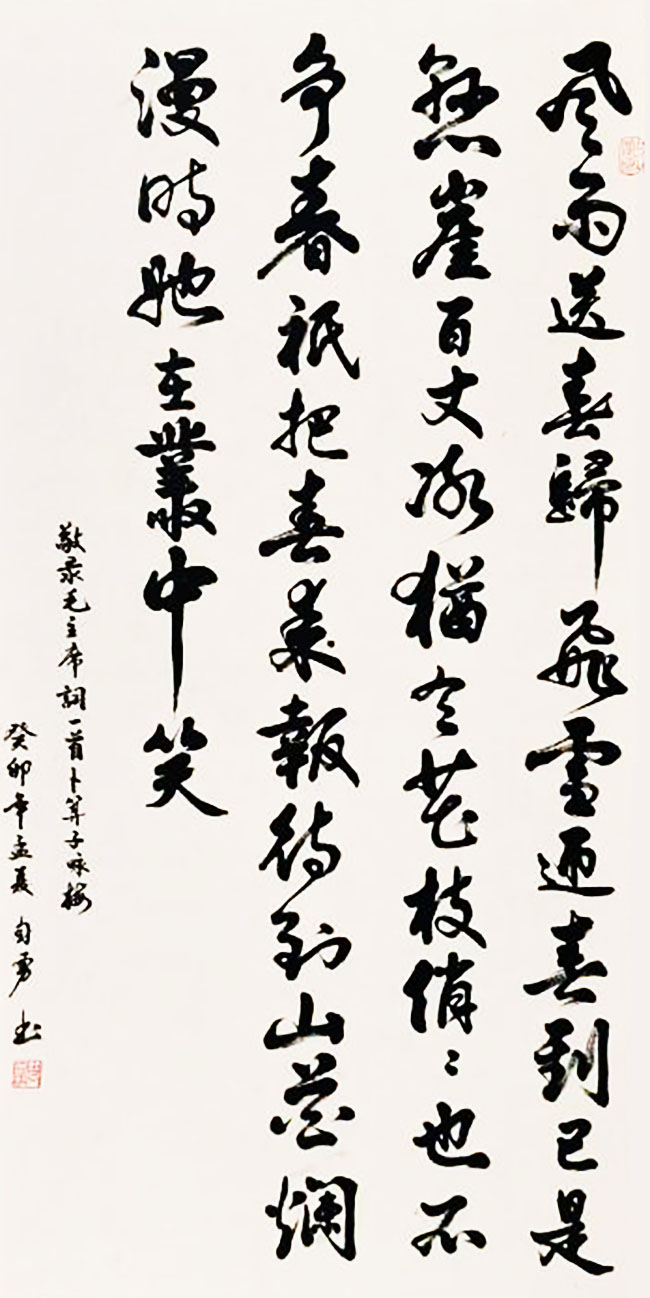 风雨送春歸飛雪迎春到已是
懸崖百丈冰猶有花枝俏〻也不
争春祇把春来報待到山花爛
漫時她在叢中笑
敬录毛主席詞一首卜算子咏梅
癸卯年孟夏自勇书